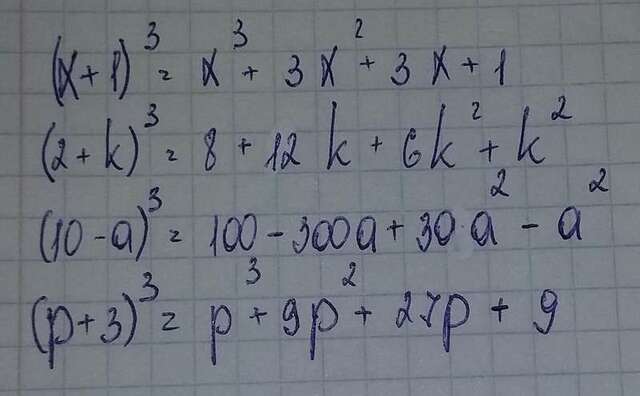 (x+1)³ = x³ + 3x² + 3x + 1
(2+k)³ = 8 + 12k + 6k² + k²
(10-a)³ = 100 - 300a + 30·a² - a²
(p+3)³ = p³ + 9p² + 27p + 9